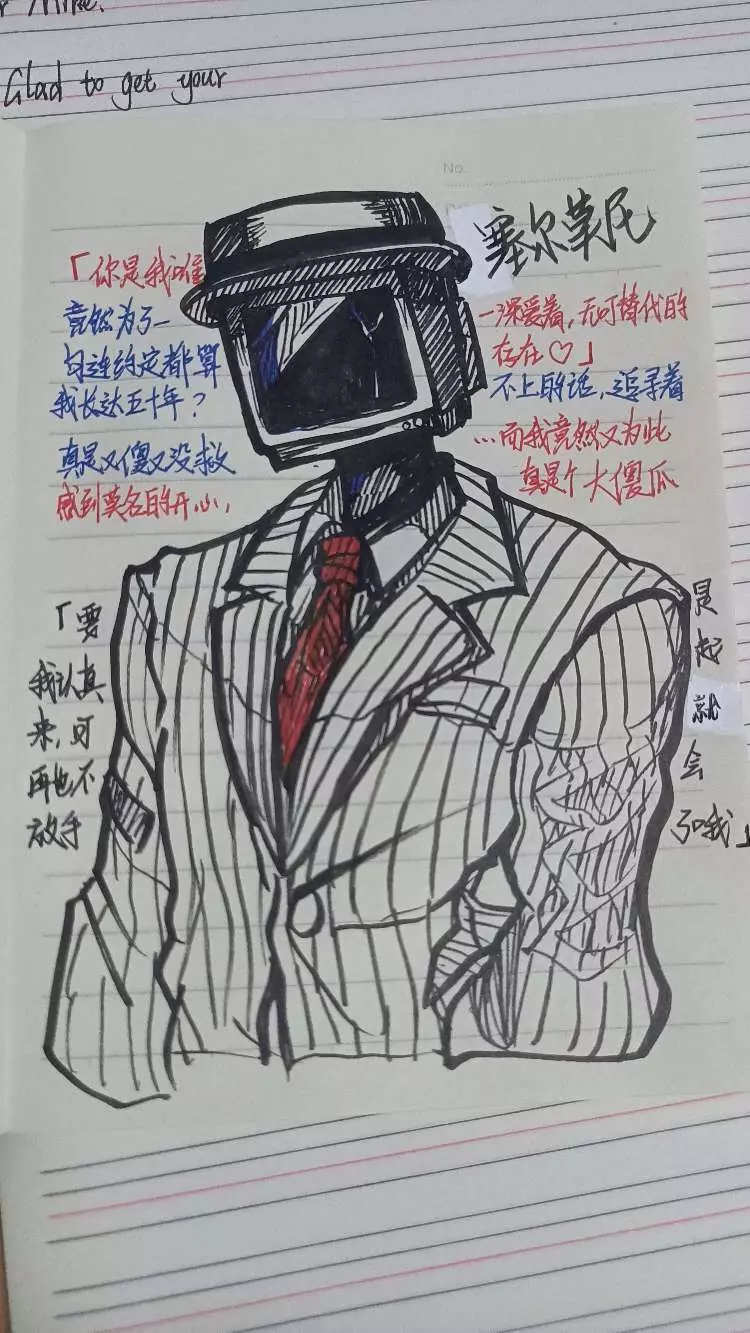 Mike.
Glad to get your
No.
塞尔
「你是我唯
一深爱着，无可替代的
存在♡」
竟然为了一
句连约定都算
不上的话，追寻着
我长达五十年？
真是又傻又没救
...而我竟然又为此
感到莫名的开心，
真是个大傻瓜
「要
是
我认真
起
来，可
就
再也不
会
放手
了哦」